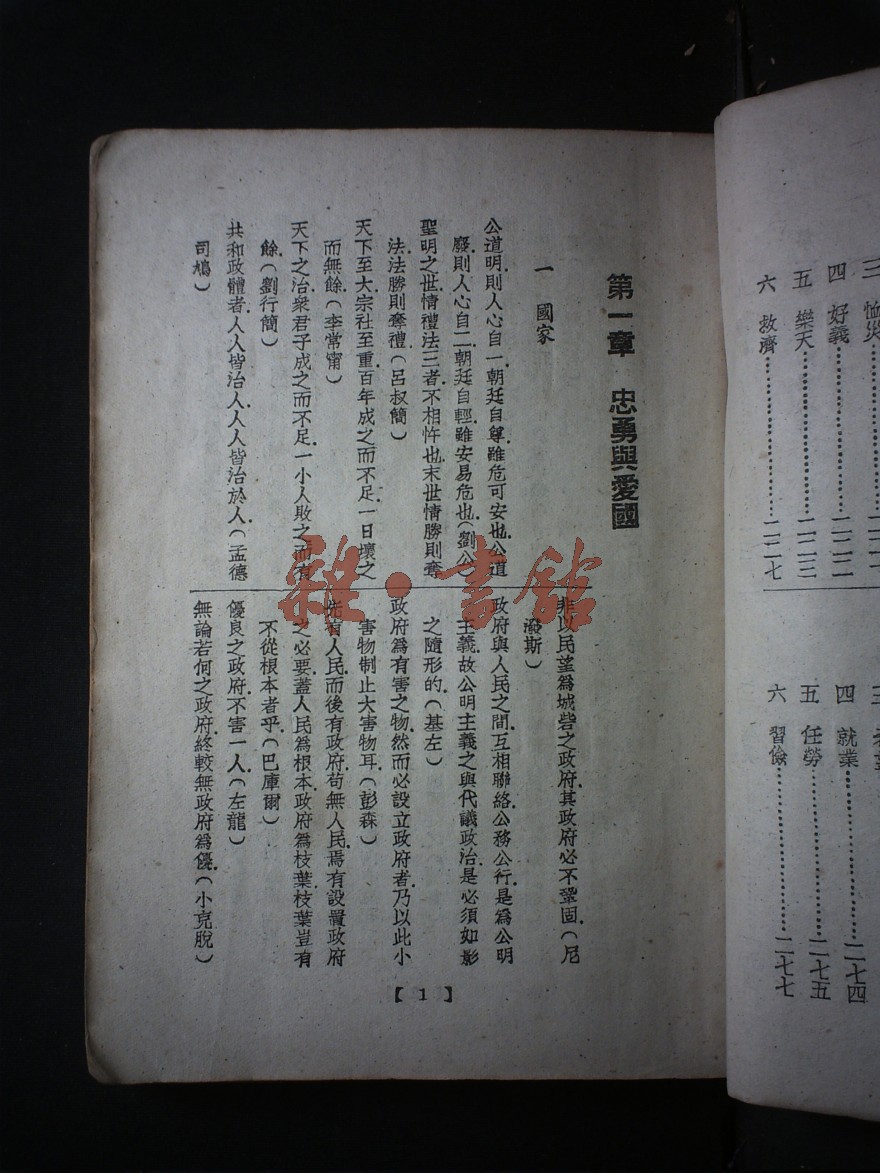 四 好義……二二二
五 樂天……二二三
六 救濟……二二七
四 就業……二七四
五 任勞……二七五
六 習儉……二七七
第一章 忠勇與愛國
一 國家
公道明.則人心自一.朝廷自尊.雖危可安也.公道
廢.則人心自二.朝廷自輕.雖安易危也(劉公)
聖明之世.情禮法三者.不相忤也.末世情勝則奪
法.法勝則奪禮(呂叔簡)
天下至大.宗社至重.百年成之而不足.一日壞之
而無餘(李常甯)
天下之治.衆君子成之而不足.一小人敗之而有
餘(劉行簡)
共和政體者.人人皆治人.人人皆治於人.(孟德
司鳩)
非以民望爲城砦之政府.其政府必不鞏固.(尼
潑斯)
政府與人民之間.互相聯絡.公務公行.是爲公明
主義.故公明主義之與代議政治.是必須如影
之隨形的.(基左)
政府爲有害之物.然而必設立政府者.乃以此小
害物.制止大害物耳(彭森)
先有人民而後有政府.苟無人民.焉有設置政府
之必要.蓋人民爲根本.政府爲枝葉.枝葉豈有
不從根本者乎.(巴庫爾)
優良之政府.不害一人.(左龍)
無論若何之政府.終較無政府爲優.(小克脫)
【1】
雜·書館